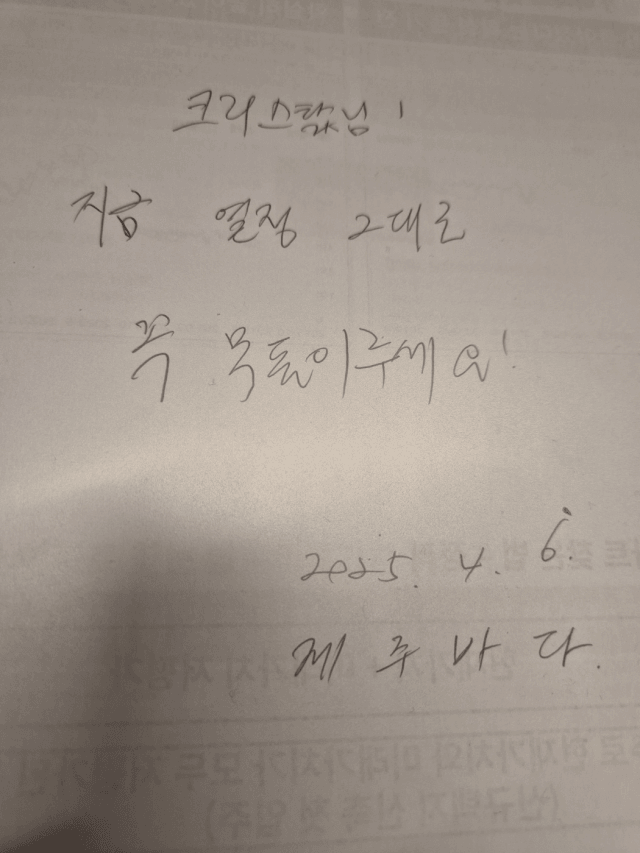 크리스탈님!
지금 열정 그대로
꼭 목돈이루세요!
2025. 4. 6.
제주바다.